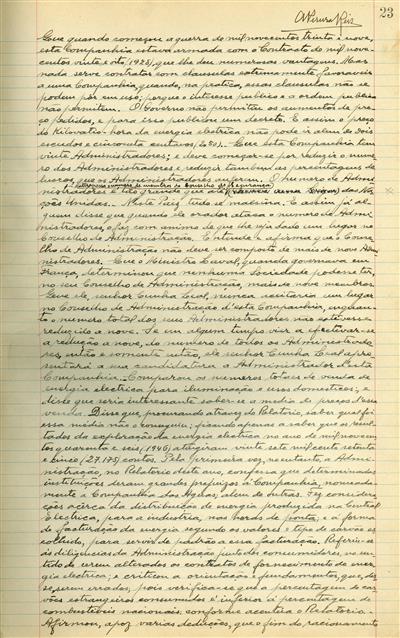 23
Que quando começou a guerra de mil novecentos trinta e nove,
esta Companhia estava armada com o Contracto de mil nove-
centos vinte e oito (1928), que lhe deu numerosas vantagens. Mas
nada serve contratos com clausulas extremamente favoraveis
a uma Companhia, quando, na pratica, essas clausulas não se
podem pôr em uso; porque o interesse publico e a ordem publica
não permitem. O Governo não permitiu os aumentos de pre-
ço pedidos, e para isso publicou um decreto. E assim o preço
do Kilovatio-hora da energia electrica não pode ir alem de dois
escudos e cincoenta centavos, (2.50). Que esta Companhia tem
vinte Administradores; e deve começar-se por reduzir o nume-
ro dos Administradores e reduzir tambem as percentagens de
lucros que os Administradores auferem. O numero de Admi-
nistradores é tão grande que até das Na-
ções Unidas. Neste Paiz tudo se malsina. E assim já al-
guem disse que quando ele orador ataca o numero de Admi-
nistradores, o faz com animo de que lhe seja dado um lugar no
Conselho de Administração. O entende e afirma que o Conse-
lho de Administração não deve ser composto de mais de nove Admi-
nistradores. Que o Ministro Laval, quando governava em
França, determinou que nenhuma Sociedade podesse ter,
no seu Conselho de Administração, mais de nove membros.
Que ele, senhor Cunha Leal, nunca aceitaria um lugar
no Conselho de Administração d'esta Companhia, enquan-
to o numero total dos seus Administradores não estivesse
reduzido a nove. Se em algum tempo vier a efectivar-se
a redução a nove, do numero de todos os Administrado-
res, então e somente então, ele senhor Cunha Leal apre-
sentará a sua candidatura a Administrador d'esta
Companhia. Comparou os numeros totaes de venda de
energia electrica para iluminação e usos domesticos; e
disse que seria interessante saber-se a media do preço d'essa
venda. Disse que, procurando atravez do Relatorio, saber qual foi
essa média não o conseguiu; ficando apenas a saber que os resul-
tados da exploração da energia electrica, no ano de mil noveceн-
tos quarenta e seis, (1946) atingiram vinte sete mil cento setenta
e cinco (27.175) contos. Pela primeira vez, no entanto, a Admi-
nistração, no Relatorio deste ano, confessa que determinadas
instituições deram grandes prejuizos á Companhia, nomeada-
mente a Companhia das Aguas, alem de outras. Fez considera-
ções acerca da distribuição de energia produzida na Central
Electrica, para a industria, nas horas de ponta, e a fórma
de facturação da energia segundo os valores e tipo de carvão es-
colhido, para servir de padrão a essa facturação. Referiu-se
ás diligencias da Administração junto dos consumidores, no sen-
tido de serem alterados os contratos de fornecimento de ener-
gia electrica; e criticou a orientação e fundamentos, que, dis-
se, serem errados, pois verifica-se que a percentagem de car-
vões estrangeiros consumidos é inferior á percentagem de
combustiveis nacionais conforme acentúa o Relatorio.
Afirmou, apoz varias deduções, que o fim do racionamento